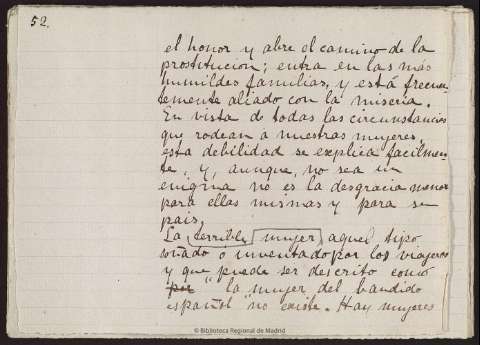 52.
el honor y abre el camino de la
prostitucion; entra en las más
humildes familias, y está frecuen
temente aliado con la miseria.
En vista de todas las circunstancias
que rodean a nuestras mujeres,
esta debilidad se explica facilmen
te, y, aunque, no sea un
enigma no es la desgracia menor
para ellas mismas y para su
pais.
La terrible mujer, aquel tipo
soñado o inventado por los viajeros
y que puede ser descrito como
"la mujer del bandido
español" no existe. Hay mujeres
© Biblioteca Regional de Madrid